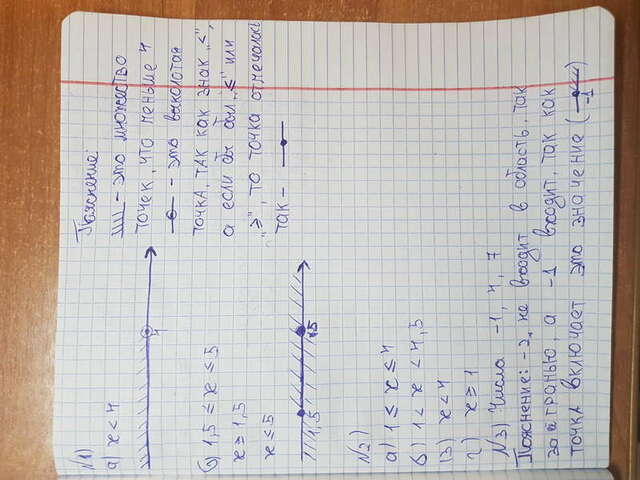 N1)
а) x < 4
4
б) 1,5 ≤ x ≤ 5
x ≥ 1,5
x ≤ 5
1,5 5
N2)
а) 1 ≤ x ≤ 4
б) 1 < x < 4,5
в) x < 4
г) x ≥ 1
N3) Числа -1, 4, 7
Пояснение:
- это множество
точек, что меньше 4
- это выколотая
точка, так как знак „<“,
а если бы был „≤“ или
„≥“, то точка отмечалась
так -
Пояснение: -2 не входит в область, так
за её гранью, а -1 входит, так как
точка включает это значение (
-1 )